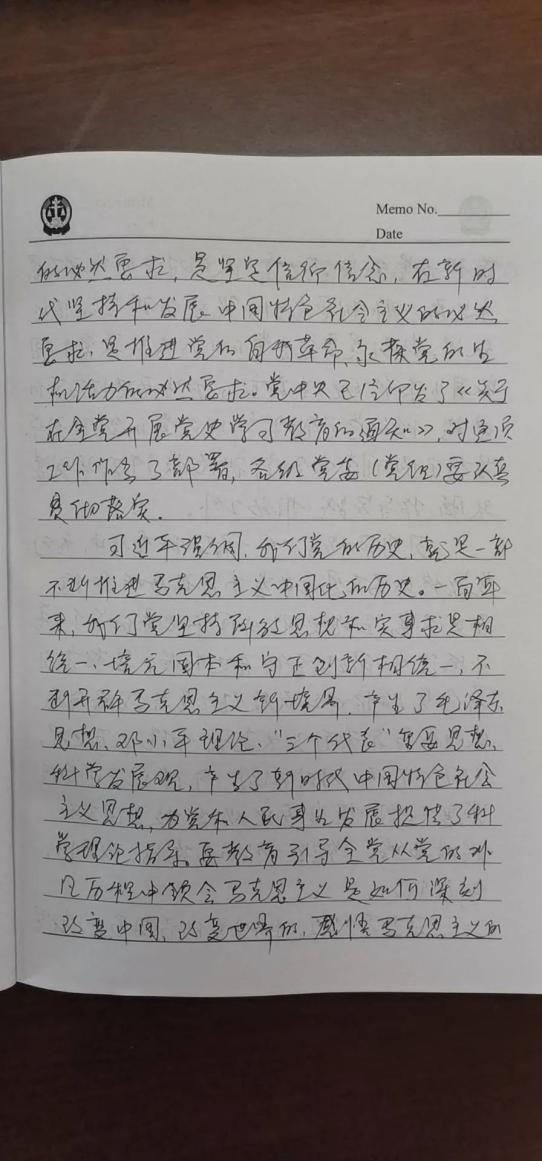 Memo No.
Date
的必然要求，是坚定信仰信念，在新时
代坚持和发展中国特色社会主义的必然
要求，是推进党的自我革命、永葆党的生
机活力的必然要求。党中央已经印发了《关于
在全党开展党史学习教育的通知》，对这项
工作作出了部署，各级党委（党组）要认真
贯彻落实。
习近平强调，我们党的历史，就是一部
不断推进马克思主义中国化的历史。一百年
来，我们党坚持解放思想和实事求是相
统一、培元固本和守正创新相统一，不
断开辟马克思主义新境界，产生了毛泽东
思想、邓小平理论、“三个代表”重要思想、
科学发展观，产生了新时代中国特色社会
主义思想，为党和人民事业发展提供了科
学理论指导。要教育引导全党从党的非
凡历程中领会马克思主义是如何深刻
改变中国、改变世界的，感悟马克思主义的